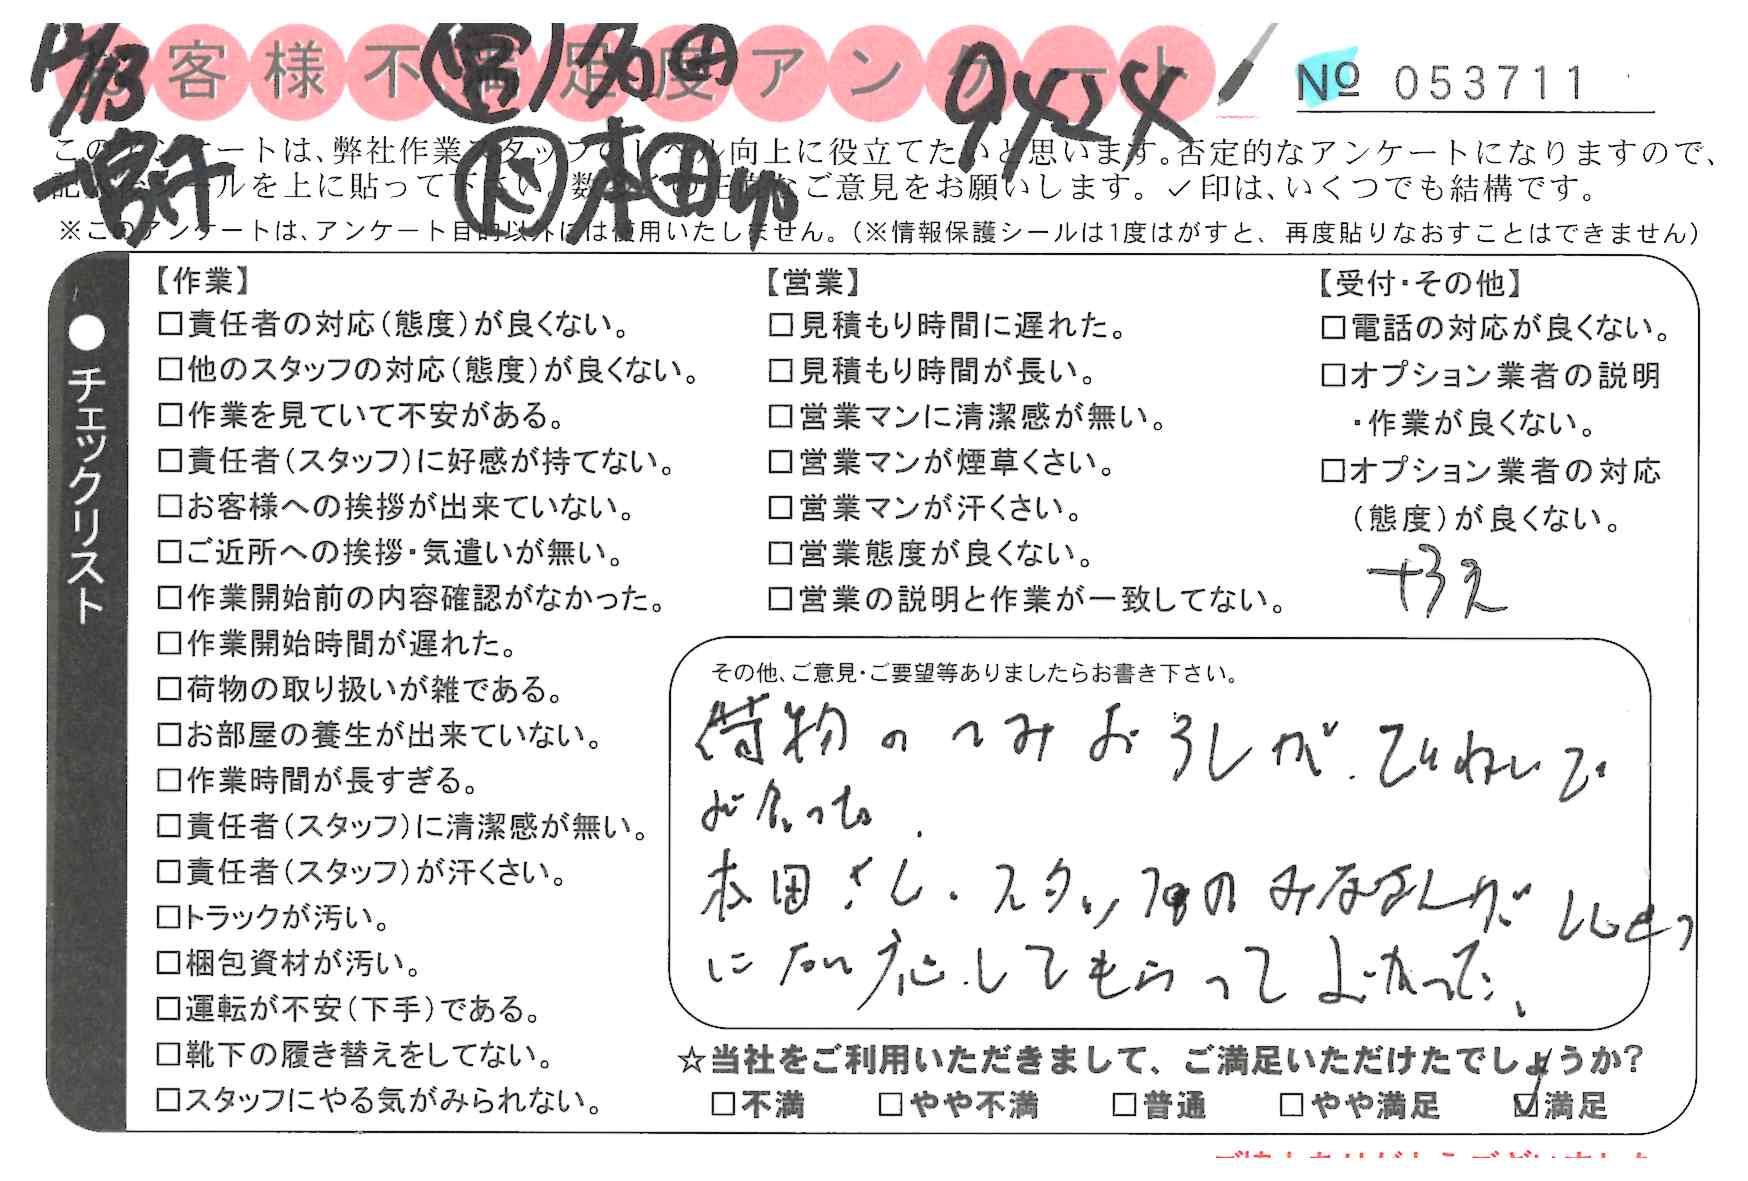 お客様不満足度アンケート
№ 053711
12/13
多田
9424
本田
このアンケートは、弊社作業スタッフのレベル向上に役立てたいと思います。否定的なアンケートになりますので、
シールを上に貼って下さい。数多くの正直なご意見をお願いします。✓印は、いくつでも結構です。
※このアンケートは、アンケート目的以外には使用いたしません。（※情報保護シールは1度はがすと、再度貼りなおすことはできません）
●チェックリスト
【作業】
□責任者の対応（態度）が良くない。
□他のスタッフの対応（態度）が良くない。
□作業を見ていて不安がある。
□責任者（スタッフ）に好感が持てない。
□お客様への挨拶が出来ていない。
□ご近所への挨拶・気遣いが無い。
□作業開始前の内容確認がなかった。
□作業開始時間が遅れた。
□荷物の取り扱いが雑である。
□お部屋の養生が出来ていない。
□作業時間が長すぎる。
□責任者（スタッフ）に清潔感が無い。
□責任者（スタッフ）が汗くさい。
□トラックが汚い。
□梱包資材が汚い。
□運転が不安（下手）である。
□靴下の履き替えをしてない。
□スタッフにやる気がみられない。
【営業】
□見積もり時間に遅れた。
□見積もり時間が長い。
□営業マンに清潔感が無い。
□営業マンが煙草くさい。
□営業マンが汗くさい。
□営業態度が良くない。
□営業の説明と作業が一致してない。
【受付・その他】
□電話の対応が良くない。
□オプション業者の説明
・作業が良くない。
□オプション業者の対応
（態度）が良くない。
その他、ご意見・ご要望等ありましたらお書き下さい。
荷物のつみおろしが、ていねいで
よかった。
本田さん、スタッフのみなさんが
に対応してもらってよかった、
☆当社をご利用いただきまして、ご満足いただけたでしょうか?
□不満 □やや不満 □普通 □やや満足 ☑満足